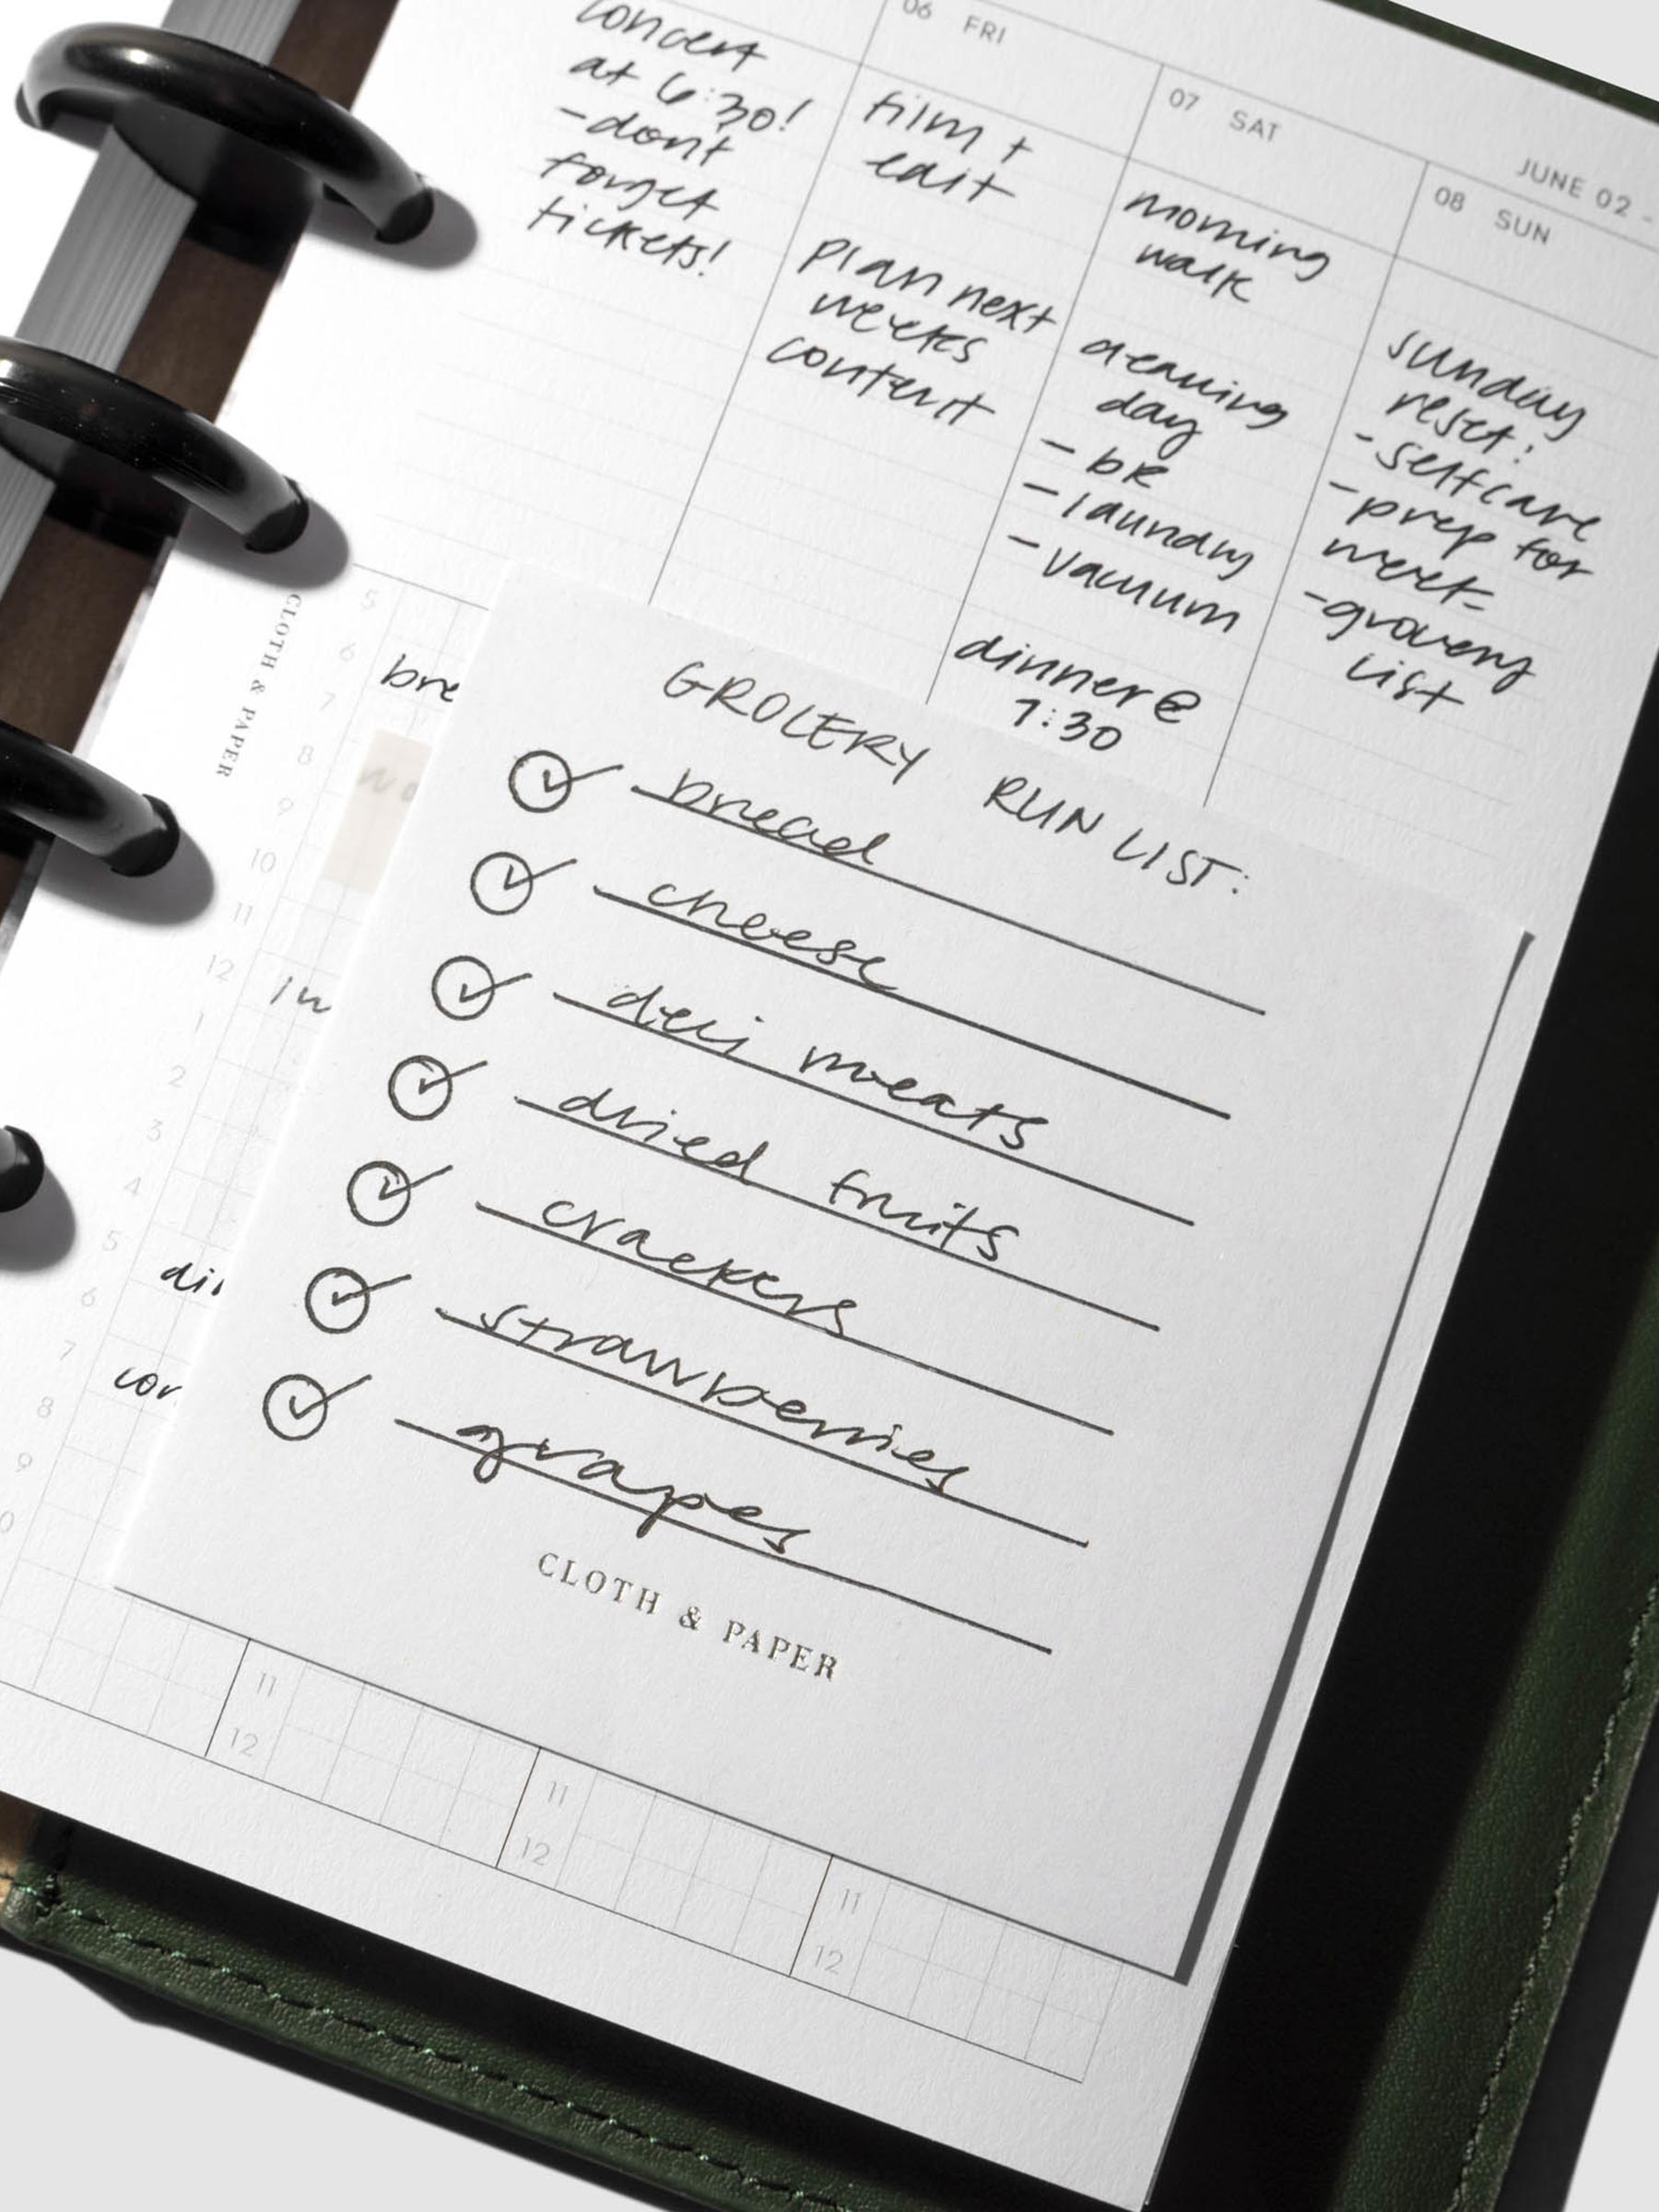 JUNE 02 -
concert
at 6:30!
- dont
forget
tickets!
06 FRI
film +
edit
plan next
weeks
content
07 SAT
morning
walk
cleaning
day
- br
- laundry
- vacuum
dinner @
7:30
08 SUN
sunday
reset:
- selfcare
- prep for
week
- grocery
list
CLOTH & PAPER
5
6
bre
7
8
9
10
11
12
1
2
3
4
5
6
7
8
9
GROCERY RUN LIST:
bread
cheese
deli meats
dried fruits
crackers
strawberries
grapes
CLOTH & PAPER
11
12
11
12
11
12